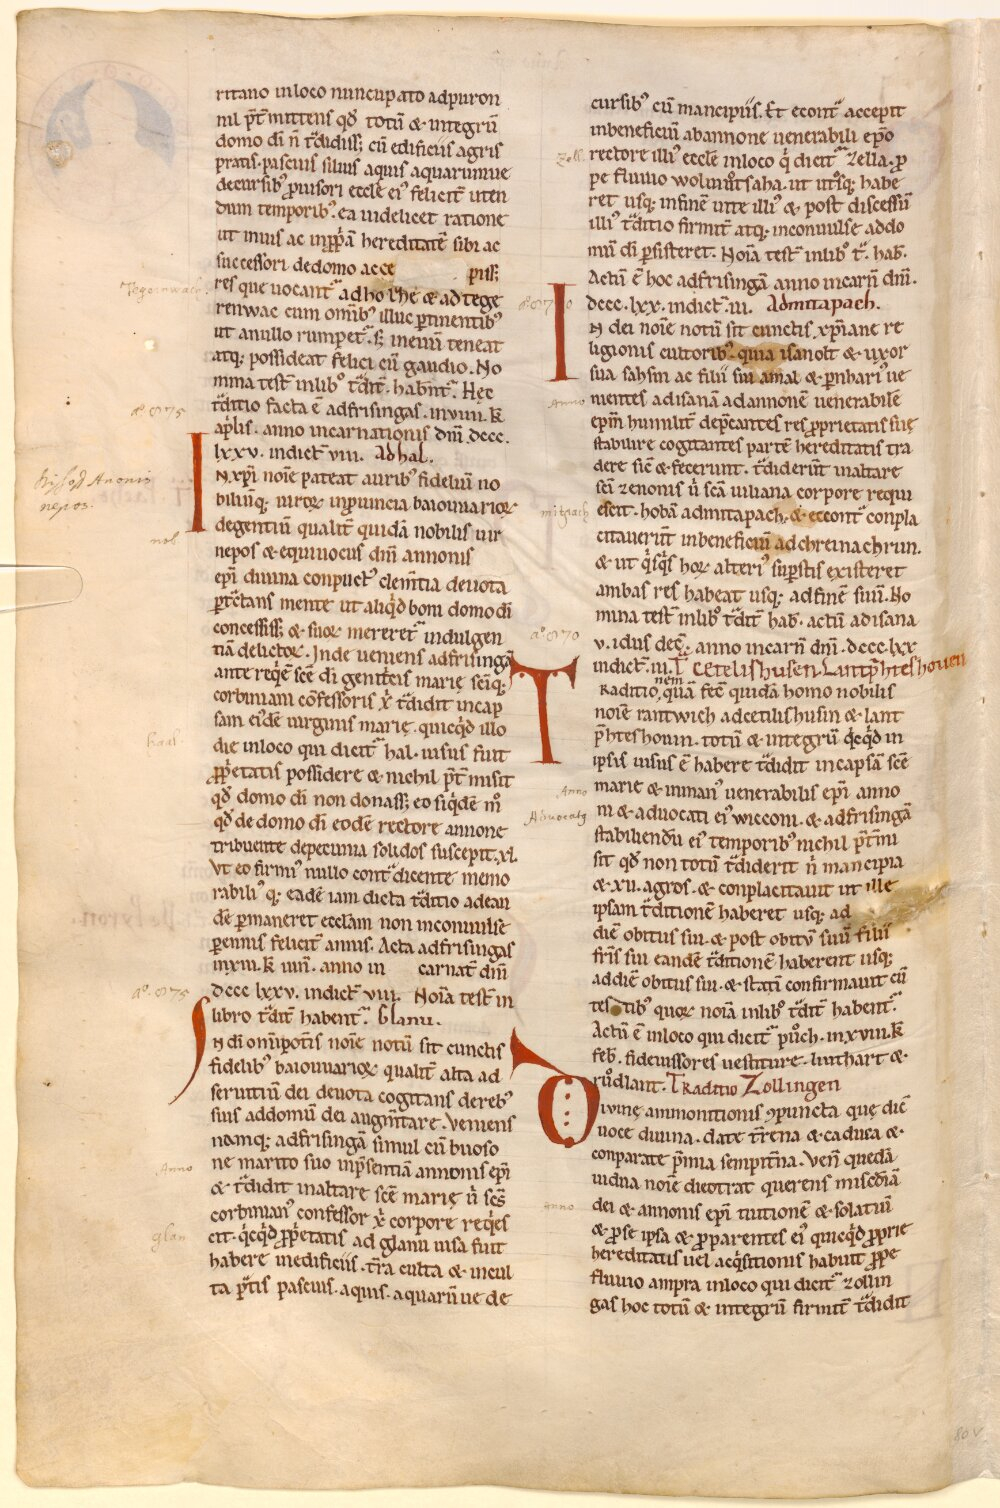 ritano in loco nuncupato ad puron
nil p̄t̄ mittens qđ totū & integrū
domo dī n̄ t̄didiss; cū edificiis agris
pratis · pascuis siluis aquis aquarumue
decursibꝰ ꝓuisori eccle eiꝰ felicit̄ uten
dum temporibꝰ. ea uidelicet ratione
ut in uis ac in ꝓp̄ā hereditatē sibi ac
successori de domo acce piss;
res que uocant᷑ ad hollhe & ad tege
renwac cum om̄ibꝰ illuc ꝑtinentibꝰ
ut a nullo rumpet᷑. s; in euū teneat
atq; possideat felici cū gaudio. No
mina test̄ in libꝰ t̄dit᷑. hab̄nt᷑. Hęc
t̄ditio facta ē ad frisingas. in viiii. k̄
ap̄lis. anno incarnationis dn̄i dccc.
lxxv. indict̄ viii. Ad hal.
IN xp̄i noīe pateat auribꝰ fideliū no
biliūq; uiroꝝ in ꝓuincia baiouuarioꝝ
degentiū qualit̄ quidā nobilis uir
nepos & equiuocus dn̄i annonis
ep̄i diuina conpūctꝰ clem̄tia deuota
ꝑt̄ctans mente ut aliqͥd boni domo dī
concessiss; & suoꝝ mereret᷑ indulgen
tiā delictoꝝ. Inde ueniens ad frisingā
ante reqͥē sc̄ē dī genit̄cis marię sc̄iq;
corbiniani cōfessoris x̄ t̄didit in cap
sam eiꝰdē uirginis marię. quicqͥd illo
die in loco qui dicit᷑ hal · uisus fuit
ꝓp̄etatis possidere & nichil p̄t̄ misit
qđ domo dī non donass; eo siqͥdē m̊
qđ de domo dī eodē rectore annone
tribuente de pecunia solidos suscepit. xl.
Vt eo firmiꝰ nullo cont᷑dicente memo
rabiliꝰ q; eadē iam dicta t̄ditio ad ean
dē ꝑmaneret eccl̄am non inconuulse
ꝑennis felicit̄ annis. Acta ad frisingas
in xiii. k̄ iun̄. anno in carnat̄ dn̄i
dccc lxxv. indict̄ viii. Noīa test̄ in
libro t̄dit᷑ habent᷑. Glanu.
IN dī om̄ipotis noīe notū sit cunctis
fidelibꝰ baiouuarioꝝ qualit̄ alta ad
seruitiū dei deuota cogitans de rebꝰ
suis ad domū dei augm̄tare. Veniens
namq; ad frisingā simul cū buoso
ne marito suo in p̄sentiā annonis ep̄i
& t̄didit in altare sc̄ē marię ū sc̄s̄
corbinianꝰ confessor x̄ corpore reqͥes
cit. qͥcqͥd ꝓp̄etatis ad glanu uisa fuit
habere in edificiis. t̄ra culta & incul
ta p̄tis pascuis. aquis. aquarūue de
cursibꝰ cū mancipiis. Et econt᷑ accepit
in beneficiū ab annone uenerabili ep̄o
rectore illiꝰ eccl̄e in loco q̄ dicit᷑ Zella. ꝓ
pe fluuio wolmůtsaha. ut ut̄sq; habe
ret usq; in finē uite illiꝰ & post discessū
illiꝰ t̄ditio firmit̄ atq; inconuulse ad do
mū dī ꝑsisteret. Noīa test̄ in libꝰ t᷑. hab̄.
Actū ē hoc ad frisingā anno incarn̄ dn̄i.
dccc. lxx. indict̄. iii. Ad mitapach.
IN dei noīe notū sit cunctis xp̄iane re
ligionis cultoribꝰ. quia isanolt & uxor
sua sahsin ac filii sui amal & ꝑnhariꝰ ue
nientes ad isanā ad annonē uenerabilē
ep̄m humilit̄ dep̄cantes res ꝓprietatis suę
stabilire cogitantes partē hereditatis tra
dere sic̄ & fecerunt. t̄diderūt in altare
sc̄i zenonis ū sc̄ā iuliana corpore requi
escit. hobā ad mitapach. & econt᷑ conpla
citauerūt in beneficiū ad chreinachrun.
& ut qͥsqͥs hoꝝ alteriꝰ suꝑstis existeret
ambas res habeat usq; ad finē suū. No
mina test̄ in libꝰ t̄dit᷑ hab̄. actū ad isana
v. idus dec̄. anno incarn̄ dn̄i. dccc. lxx
indict̄. iii. T᷑ Cetelishusen. Lantp̄hteshouen
TRaditionem, quā fec̄ quidā homo nobilis
noīe rantwich ad cetilishusin & lant
p̄hteshouin. totū & integrū qͥcqͥd in
ipsis uisus ē habere t̄didit in capsā sc̄ē
marie & in manꝰ uenerabilis ep̄i anno
ni & aduocati eiꝰ wicconi. & ad frisingā
stabiliendū eiꝰ temporibꝰ nichil p̄t̄mi
sit qđ non totū t̄diderit n̄ mancipia
& xii. agros. & conplacitauit ut ille
ipsam t̄ditionē haberet usq; ad
diē obitus sui. & post obitū suū filii
fr̄is sui eandē t̄ditionē haberent usq;
ad diē obitus sui. & statī confirmauit cū
testibꝰ quoꝝ noīa in libꝰ t̄dit᷑ habent᷑.
Actū ē in loco qui dicit᷑ půch. in xviii. k̄
feb̄. fideiussores uestiture. liuthart &
růdlant. Traditio Zollingen
DIuinę ammonitionis ꝯpuncta quę diē
uoce diuina. date t̄rena & caduca &
conparate p̄mia sempit̄na. Ven̄ quedā
uidua noīe dieotrat querens misc̄diā
dei & annonis ep̄i tuitionē & solatiū
& ꝓ se ipsa & ꝓ parentes eiꝰ quicqͥd ꝓprie
hereditatis uel acqͥsitionis habuit ꝓpe
fluuio ampra in loco qui dicit᷑ zollin
gas hoc totū & integrū firmit̄ t̄didit
Tegernwach.
aº 875
Bischoff Anonis
nepos.
nob
haal
aº. 875
Anno
glan
Zell.
aº 870
Anno
mitpach
aº 870
Anno
Aduocatꝰ
Anno
80 v